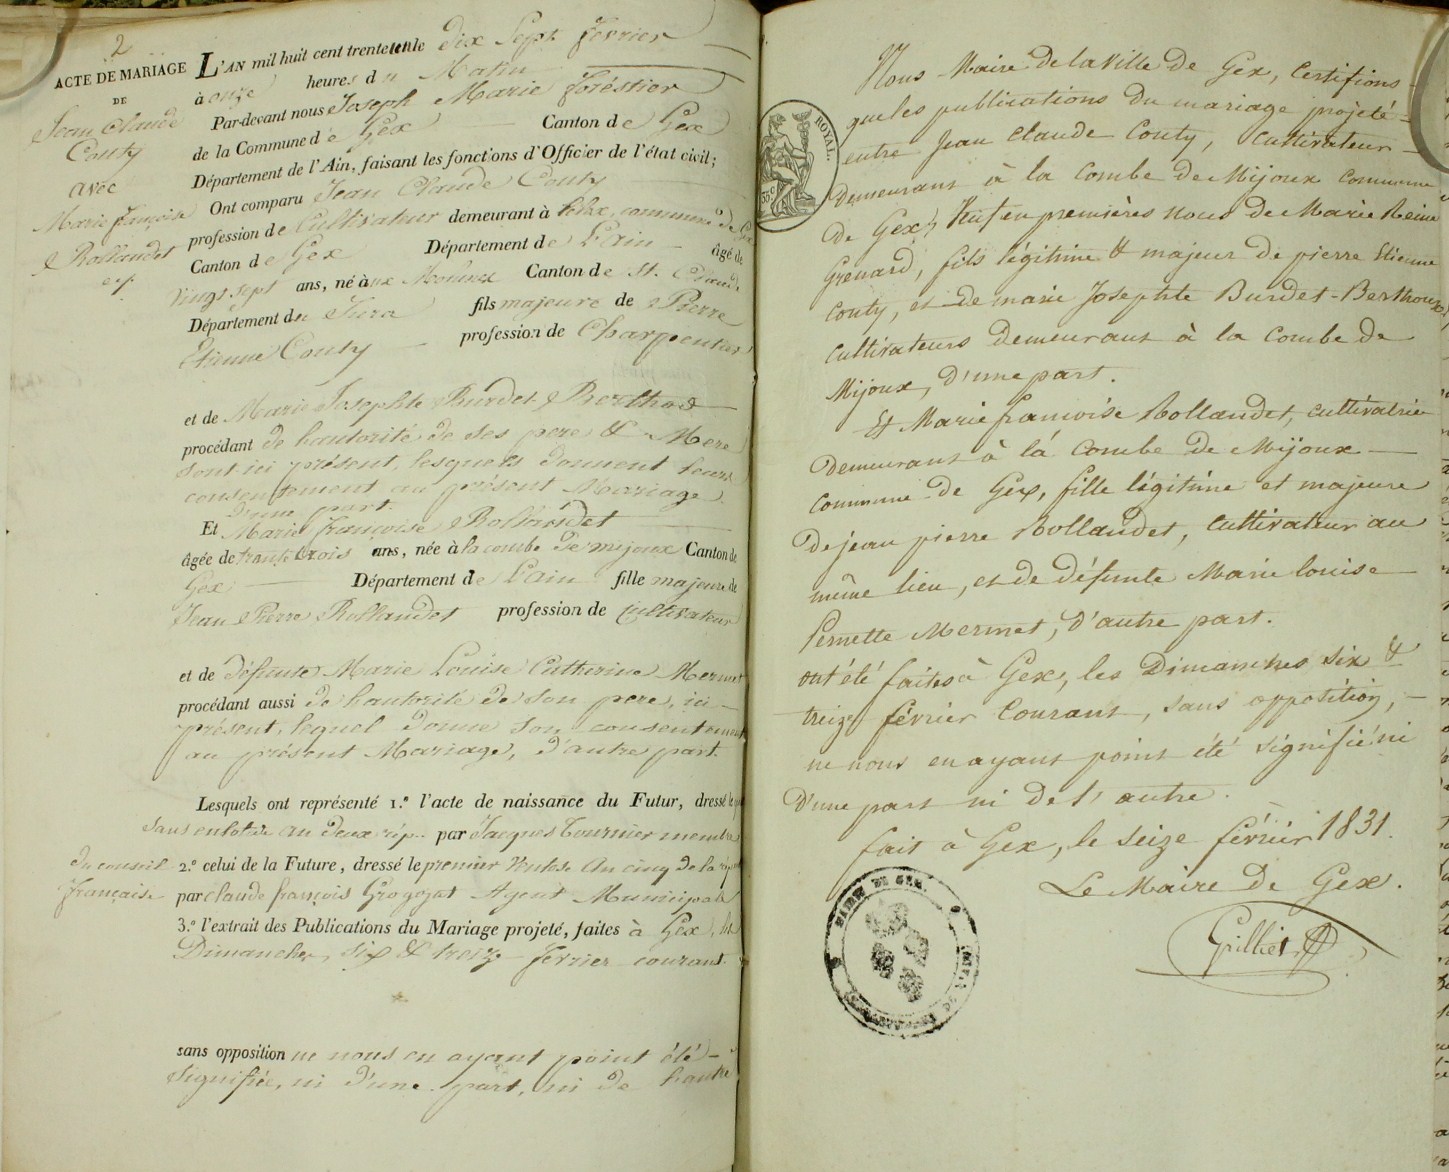 2
ACTE DE MARIAGE
DE
Jean Claude
Couty
avec
Marie françoise
Rollandet
L'AN mil huit cent trente et un le dix Sept février
à onze heures du Matin
Par-devant nous Joseph Marie foréstier
de la Commune de Gex Canton de Gex
Département de l'Ain, faisant les fonctions d'Officier de l'état civil;
Ont comparu Jean Claude Couty
profession de Cultivateur demeurant à commune de Gex
Canton de Gex Département de l'ain âgé de
vingt sept ans, né aux Canton de St. Claude
Département du Jura fils majeure de Pierre
Etienne Couty profession de Charpentier
et de Marie Josephte Burdet Berthod
procédant de l'autorité de ses pere & Mere
sont ici présent, lesquels donnent leurs
consentement au présent Marriage
d'une part
Et Marie françoise Rollandet
âgée de trante trois ans, née à la combe de mijoux Canton de
Gex Département de l'ain fille majeure de
Jean Pierre Rollandet profession de cultivateur
et de défunte Marie Louise Catherine Mermet
procédant aussi de l'autorité de son pere, ici
présent, lequel donne son consentement
au présent Mariage, d'autre part.
Lesquels ont représenté 1.º l'acte de naissance du Futur, dressé le
an deux rép. par Jacques Tournier membre
du conseil 2.º celui de la Future, dressé le premier Ventose An cinq de la rép
française par claude françois Grogojat Agent Municipale
3.º l'extrait des Publications du Mariage projeté, faites à Gex, les
Dimanches, six & treize février courant
sans opposition ne nous en ayant point été
signifiée, ni d'une part, ni de l'autre
ROYAL.
35 c
Nous Maire de la Ville de Gex, Certifions
que les publications du mariage projeté
entre Jean Claude Couty, Cultivateur
Demeurant à la Combe de Mijoux Commune
de Gex, Veuf en premières noces de Marie Reine
Grenard, fils légitime & majeur de pierre Etienne
Couty, et de marie Josephte Burdet-Berthoux,
Cultivateurs Demeurant à la Combe de
Mijoux, d'une part.
Et Marie francoise Rollandet, cultivatrice
Demeurant à la Combe de Mijoux
Commune de Gex, fille légitime et majeure
de jean pierre Rollandet, Cultivateur au
même lieu, et de défunte Marie louise
Pernette Mermet, d'autre part.
ont été faites à Gex, les Dimanches six &
treize février Courant, sans opposition,
ne nous en ayant point été signifié ni
d'une part ni de l'autre.
fait à Gex, le seize février 1831.
Le Maire de Gex.
MAIRIE DE GEX.